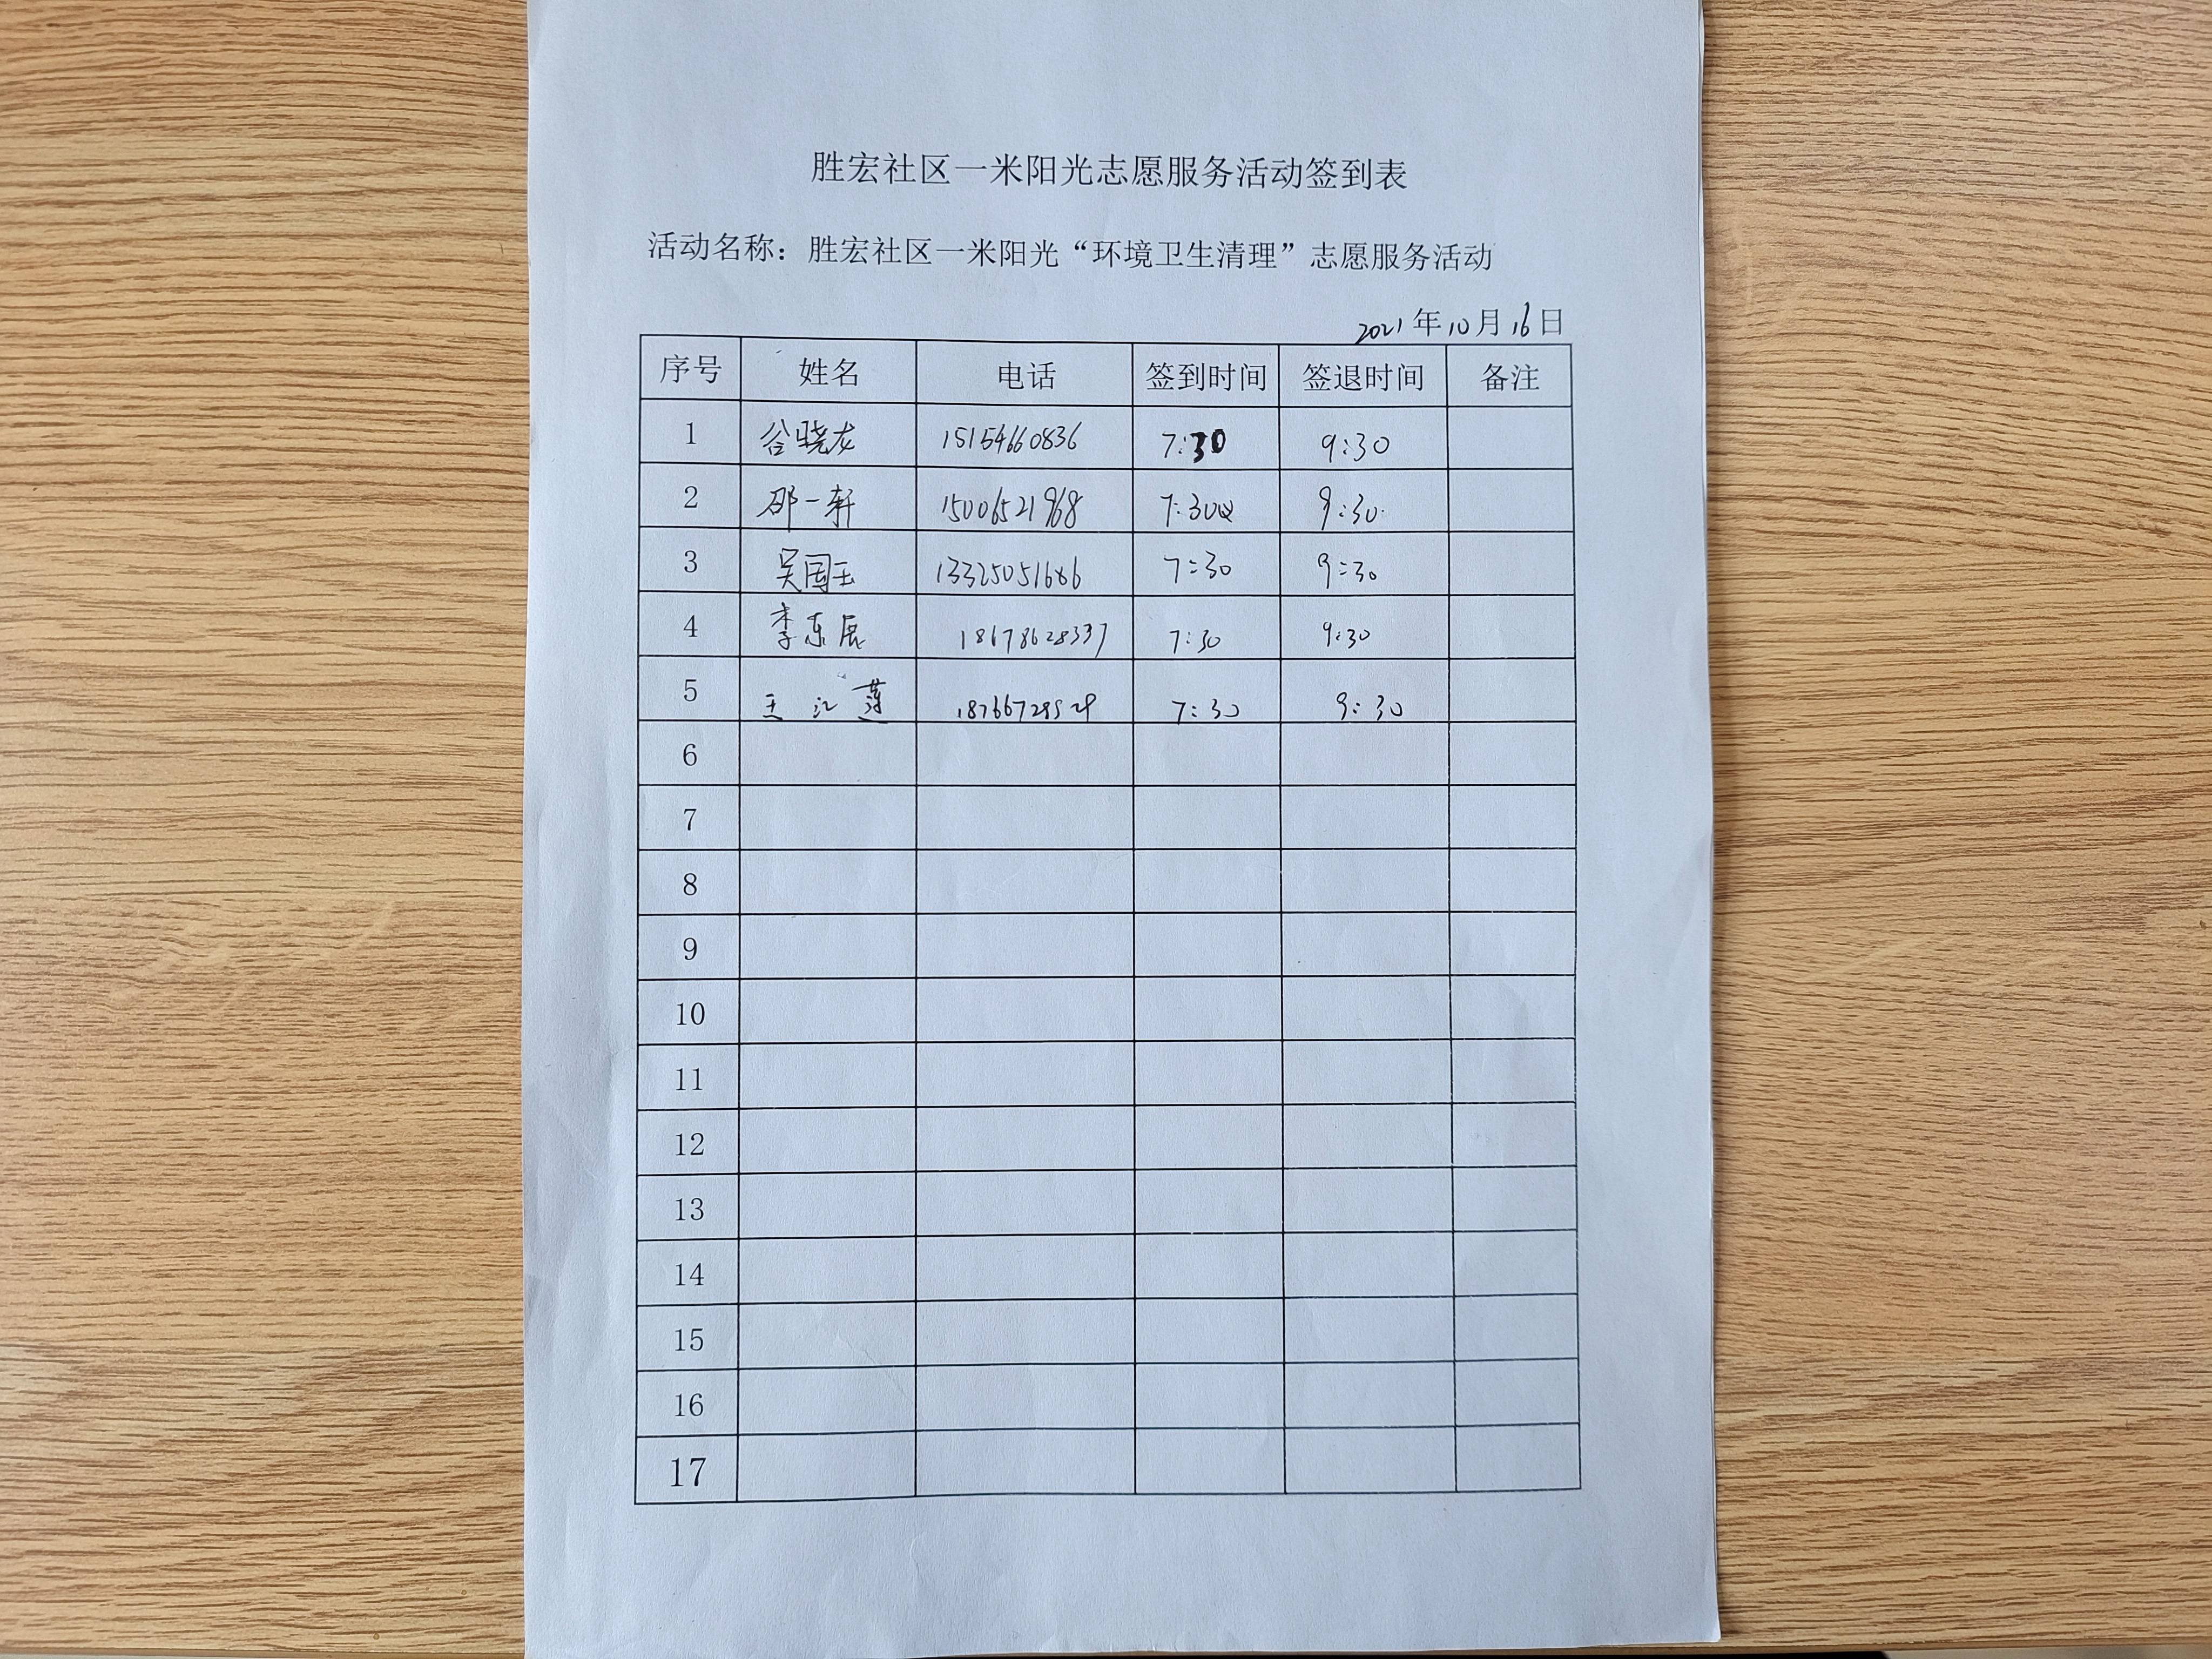 胜宏社区一米阳光志愿服务活动签到表
活动名称：胜宏社区一米阳光“环境卫生清理”志愿服务活动
2021年10月16日
序号 姓名 电话 签到时间 签退时间 备注
1 谷晓龙 15154660836 7:30 9:30
2 邵一轩 15006521968 7:30 9:30
3 吴国玉 13325051686 7:30 9:30
4 李东展 18678628337 7:30 9:30
5 王汇莲 7:30 9:30
6
7
8
9
10
11
12
13
14
15
16
17